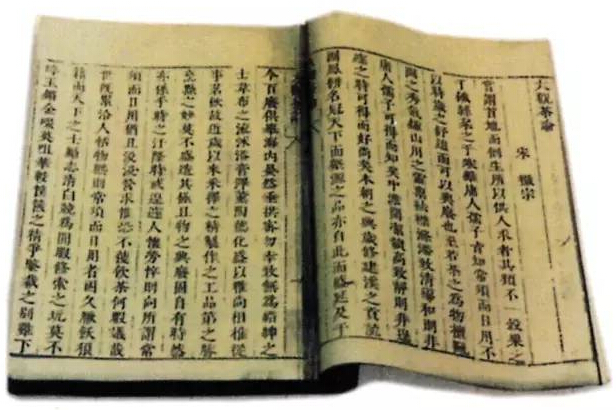 大觀茶論
宋 徽宗
嘗謂首地而倒生所以供人求者其類不一穀粟之
于饑絲枲之于寒雖庸人孺子皆知常須而日用不
以時歲之舒迫而可以興廢也至若茶之為物擅甌
閩之秀氣鍾山川之靈稟祛襟滌滯致清導和則非
庸人孺子可得而知矣中澹閒潔韻高致靜則非遑
遽之時可得而好尚矣本朝之興歲修建溪之貢龍
團鳳餅名冠天下而壑源之品亦自此而盛延及于
今百廢俱舉海內晏然垂拱密勿幸致無為縉紳之
士韋布之流沐浴膏澤薰陶德化盛以雅尚相推從
事茗飲故近歲以來采擇之精製作之工品第之勝
烹點之妙莫不盛造其極且物之興廢固自有時然
亦係乎時之汙隆時或遑遽人懷勞悴則向所謂常
須而日用猶且汲汲營求惟恐不獲飲茶何暇議哉
世既累洽人恬物熙則常須而日用者固久厭飫狼
籍而天下之士勵志清白競為閒暇修索之玩莫不
碎玉鏘金啜英咀華較篋笥之精爭鑒裁之別雖下